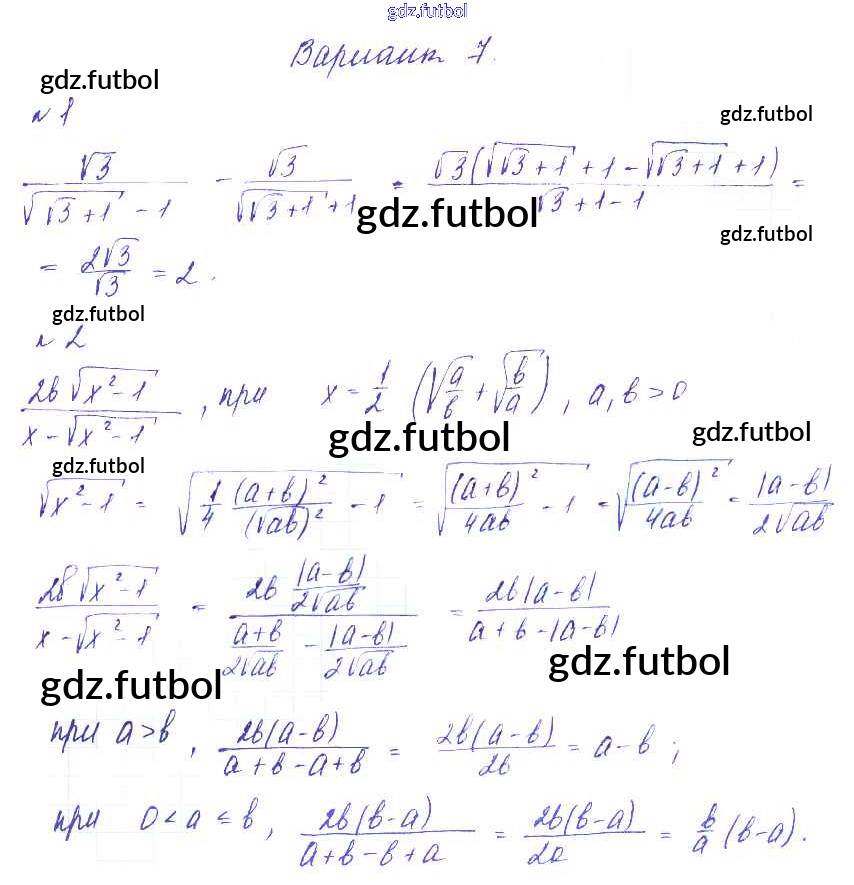 gdz.futbol
Вариант 7.
gdz.futbol
gdz.futbol
№ 1
√3/(√(√3+1) - 1) - √3/(√(√3+1) + 1) = √3(√(√3+1) + 1 - √(√3+1) + 1)/(√3+1-1) =
gdz.futbol
gdz.futbol
= 2√3/√3 = 2.
gdz.futbol
№ 2
2b√(x²-1)/(x-√(x²-1)), при x = 1/2 (√(a/b) + √(b/a)), a, b > 0
gdz.futbol
gdz.futbol
gdz.futbol
√(x²-1) = √(1/4 (a+b)²/(√ab)² - 1) = √((a+b)²/4ab - 1) = √((a-b)²/4ab) = |a-b|/2√ab
2b√(x²-1)/(x-√(x²-1)) = (2b |a-b|/2√ab)/((a+b)/2√ab - |a-b|/2√ab) = 2b|a-b|/(a+b-|a-b|)
gdz.futbol
gdz.futbol
при a>b, 2b(a-b)/(a+b-a+b) = 2b(a-b)/2b = a-b;
при 0<a≤b, 2b(b-a)/(a+b-b+a) = 2b(b-a)/2a = b/a (b-a).